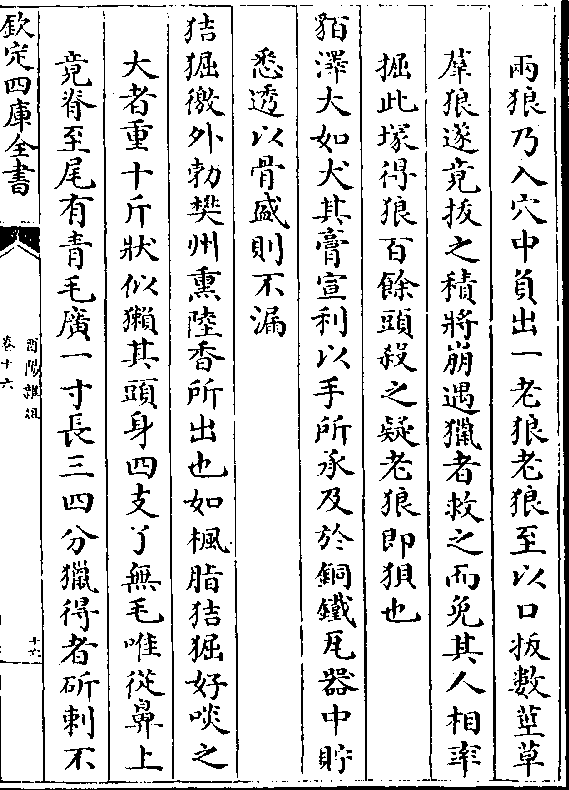 兩狼乃入穴中負出一老狼老狼至以口拔數莖草
羣狼遂竟拔之積將崩遇獵者救之而免其人相率
掘此塚得狼百餘頭殺之疑老狼即狽也
貊澤大如犬其膏宣利以手所承及於銅鐵瓦器中貯
悉透以骨盛則不漏
狤𤟎徼外勃樊州熏陸香所出也如楓脂狤𤟎好啖之
大者重十斤狀似獺其頭身四支了無毛唯從鼻上
竟脊至尾有青毛廣一寸長三四分獵得者斫刺不
欽定四庫全書
酉陽雜俎
卷十六
十六